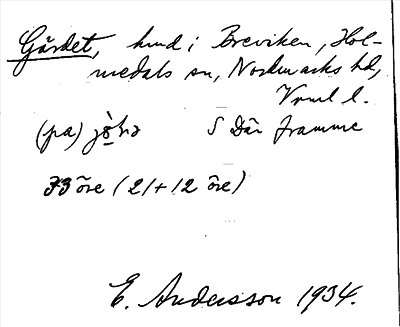 Gärdet, hmd i Breviken, Hol-
medals sn, Nordmarks hd,
Vrml l.
(pa) S Där framme
33 öre (21+12 öre)
E. Andersson 1934.